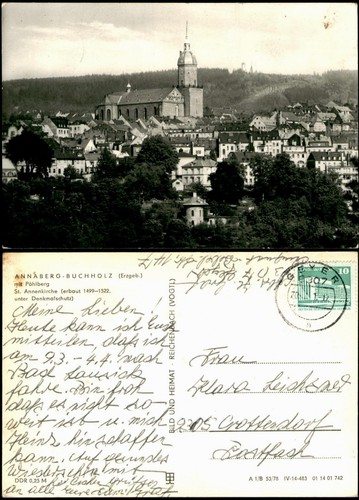 ANNABERG-BUCHHOLZ (Erzgeb.)
mit Pöhlberg
St. Annenkirche (erbaut 1499-1522,
unter Denkmalschutz)
Meine Lieben!
Heute kann ich Euch
mitteilen, daß ich
am 9.3. - 4.4. nach
Bad Lausick
fahre. Bin froh
daß es nicht so
weit ist u. mich
Heinz hinschaffen
kann. Auf gesundes
Wiedersehen mit
an alle
DDR 0,25 M
BILD UND HEIMAT REICHENBACH (VOGTL)
GEYER
10
DDR
Frau
Klara Leichsned
9305 Crottendorf
Postfach
A 1/B 55/76 IV-14-483 01 14 01 742